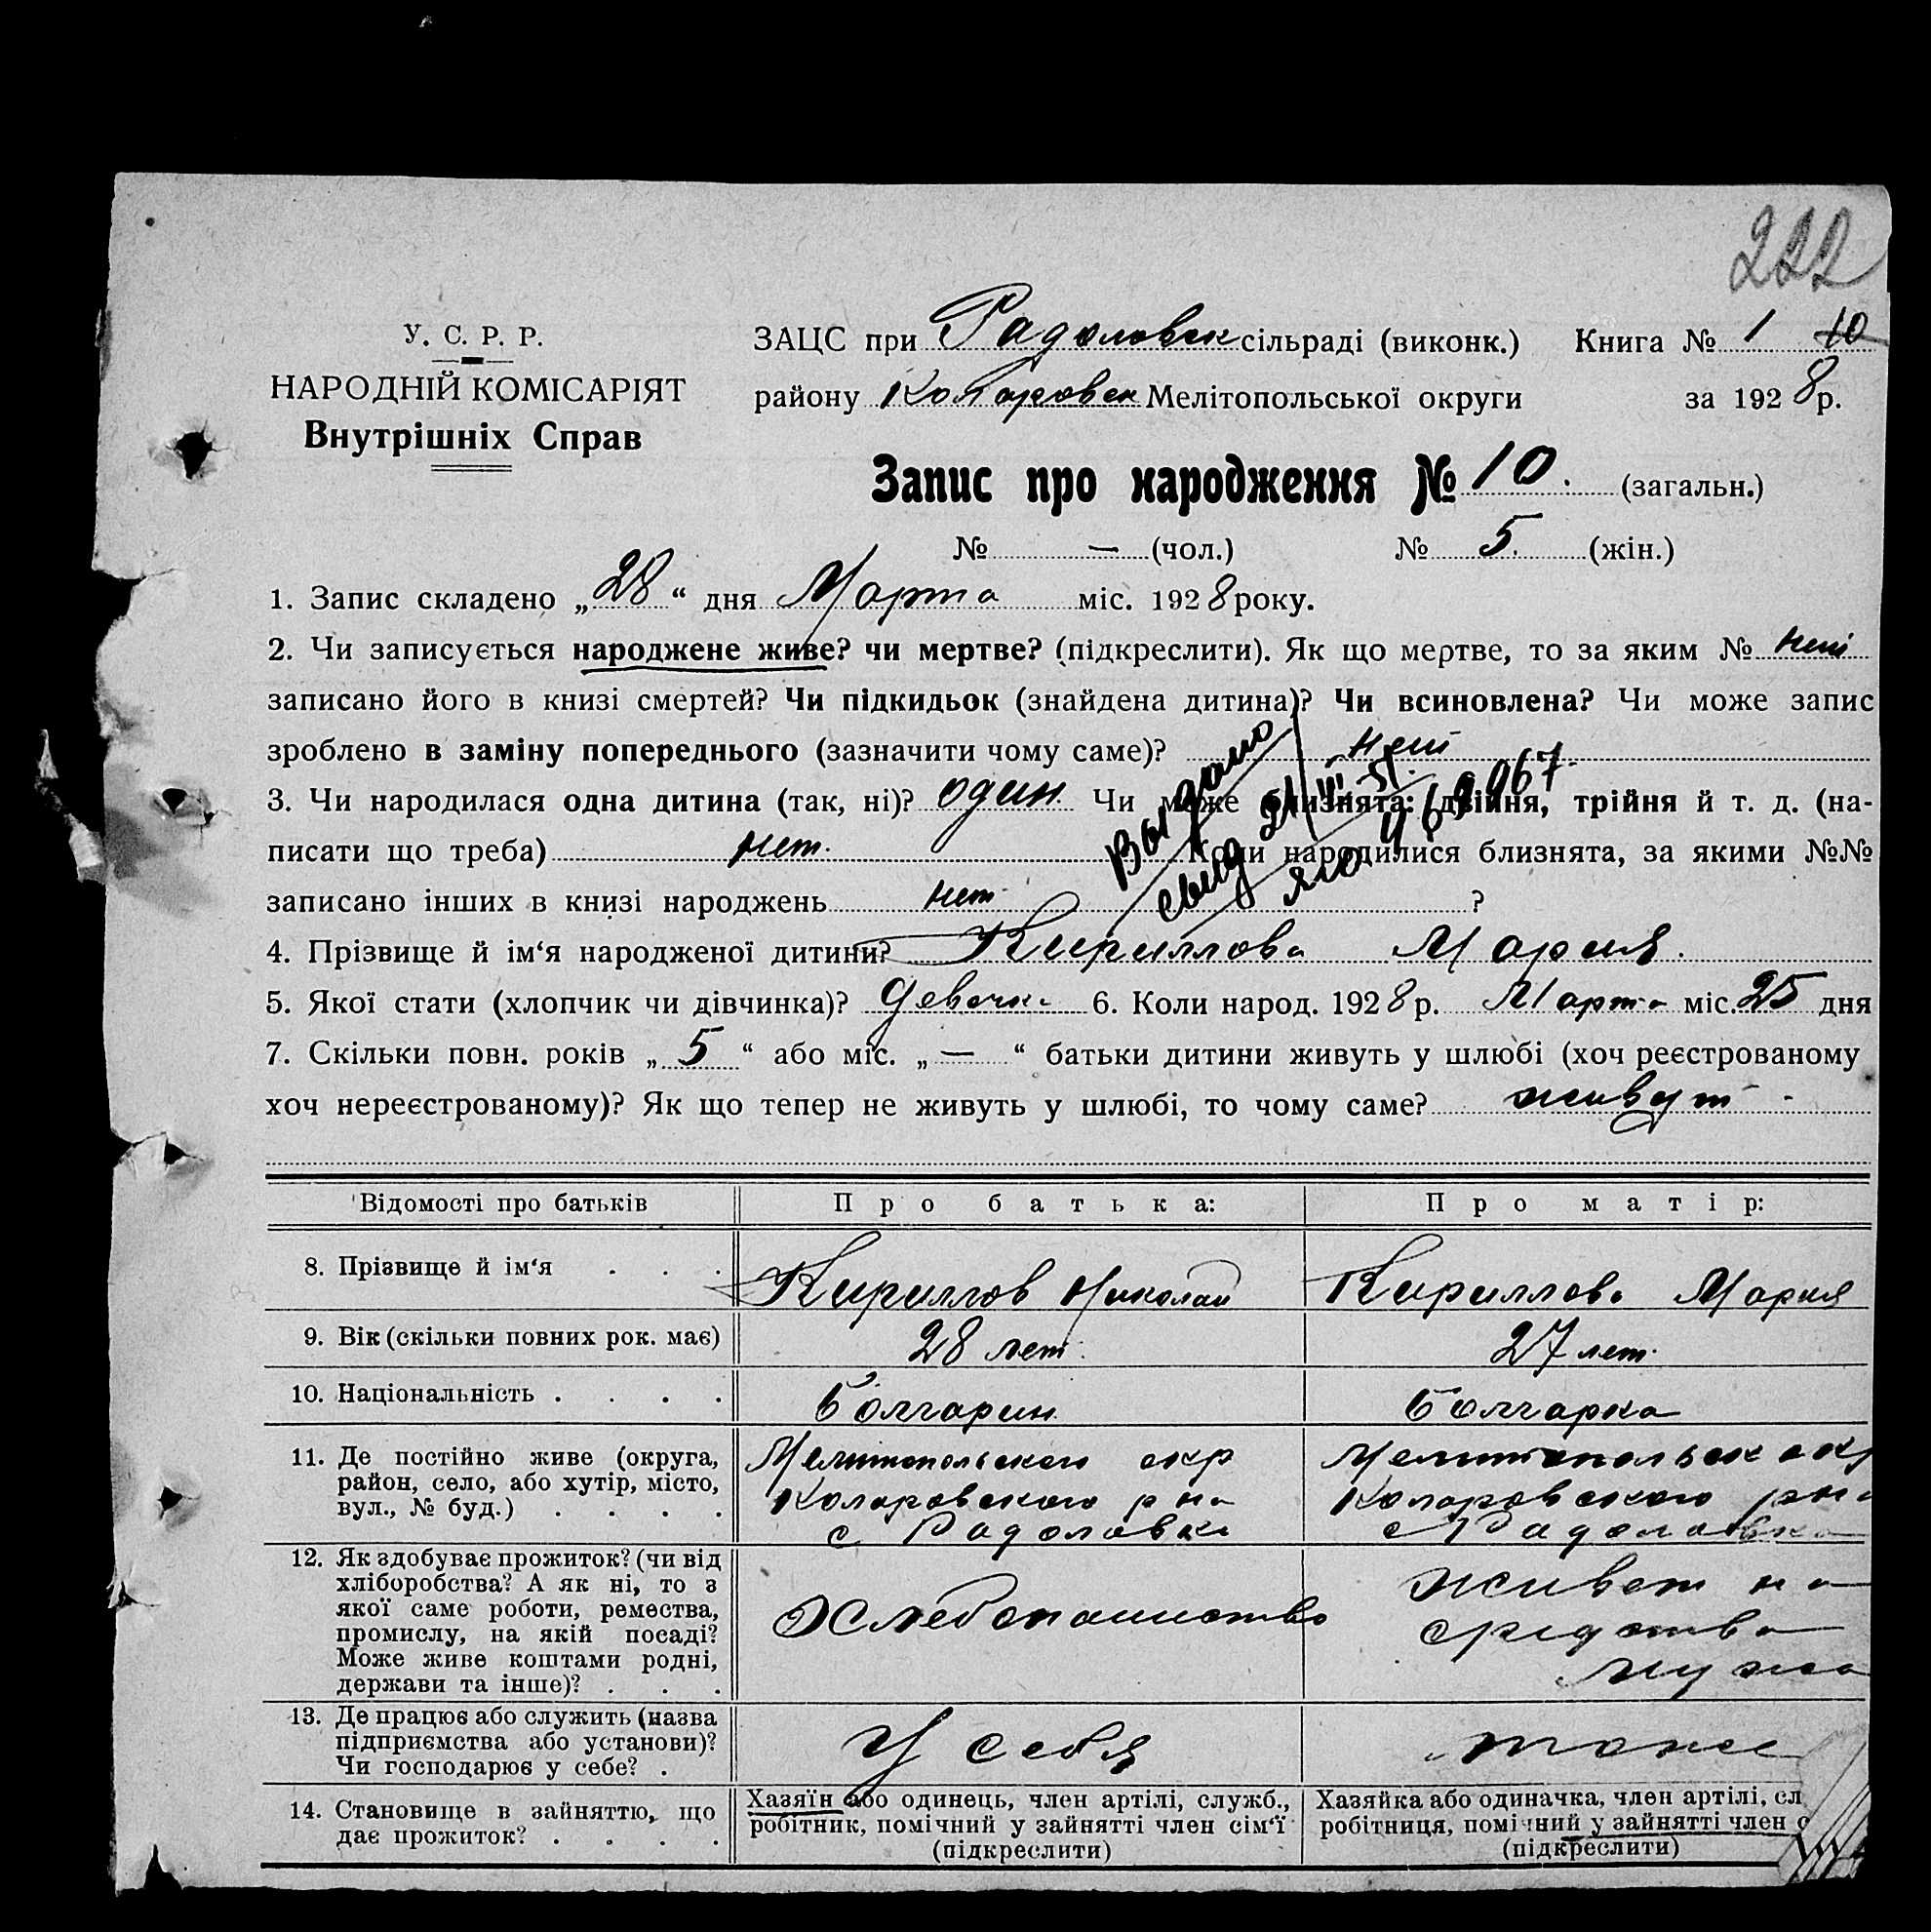 222
У. С. Р. Р.
НАРОДНІЙ КОМІСАРІЯТ
Внутрішніх Справ
ЗАЦС при Радоловск сільраді (виконк.) Книга № 1 10
району Коларовск Мелітопольської округи за 1928 р.
Запис про народження № 10. (загальн.)
№ — (чол.) № 5. (жін.)
1. Запис складено „28“ дня Марта міс. 1928 року.
2. Чи записується народжене живе? чи мертве? (підкреслити). Як що мертве, то за яким № нет
записано його в книзі смертей? Чи підкидьок (знайдена дитина)? Чи всиновлена? Чи може запис
зроблено в заміну попереднього (зазначити чому саме)? нет
3. Чи народилася одна дитина (так, ні)? один. Чи може близнята: двійня, трійня й т. д. (на-
писати що треба) нет. Коли народилися близнята, за якими №№
записано інших в книзі народжень нет ?
Выдано
свид 21/III-51.
4. Прізвище й ім‘я народженої дитини? Кириллова Мария.
5. Якої стати (хлопчик чи дівчинка)? девочка 6. Коли народ. 1928 р. Марта міс. 25 дня
7. Скільки повн. років „5“ або міс. „—“ батьки дитини живуть у шлюбі (хоч реєстрованому
хоч нереєстрованому)? Як що тепер не живуть у шлюбі, то чому саме? живут
Відомості про батьків Про батька: Про матір:
8. Прізвище й ім‘я . . . Кириллов Николай Кириллова Мария
9. Вік (скільки повних рок. має) 28 лет. 27 лет.
10. Національність . . . . Болгарин Болгарка
11. Де постійно живе (округа,
район, село, або хутір, місто,
вул., № буд.) . . . .
Мелитопольского окр
Коларовского р на
с Радоловка
Мелитопольск окр
Коларовского р на
с Радоловка
12. Як здобуває прожиток? (чи від
хліборобства? А як ні, то з
якої саме роботи, ремества,
промислу, на якій посаді?
Може живе коштами родні,
держави та інше)? . . .
Хлебопашество
живет на
средства
мужа
13. Де працює або служить (назва
підприємства або установи)?
Чи господарює у себе? .
У себя
тоже
14. Становище в зайняттю, що
дає прожиток? . . . .
Хазяїн або одинець, член артілі, служб.,
робітник, помічний у зайнятті член сім‘ї
(підкреслити)
Хазяйка або одиначка, член артілі, сл
робітниця, помічний у зайнятті член с
(підкреслити)